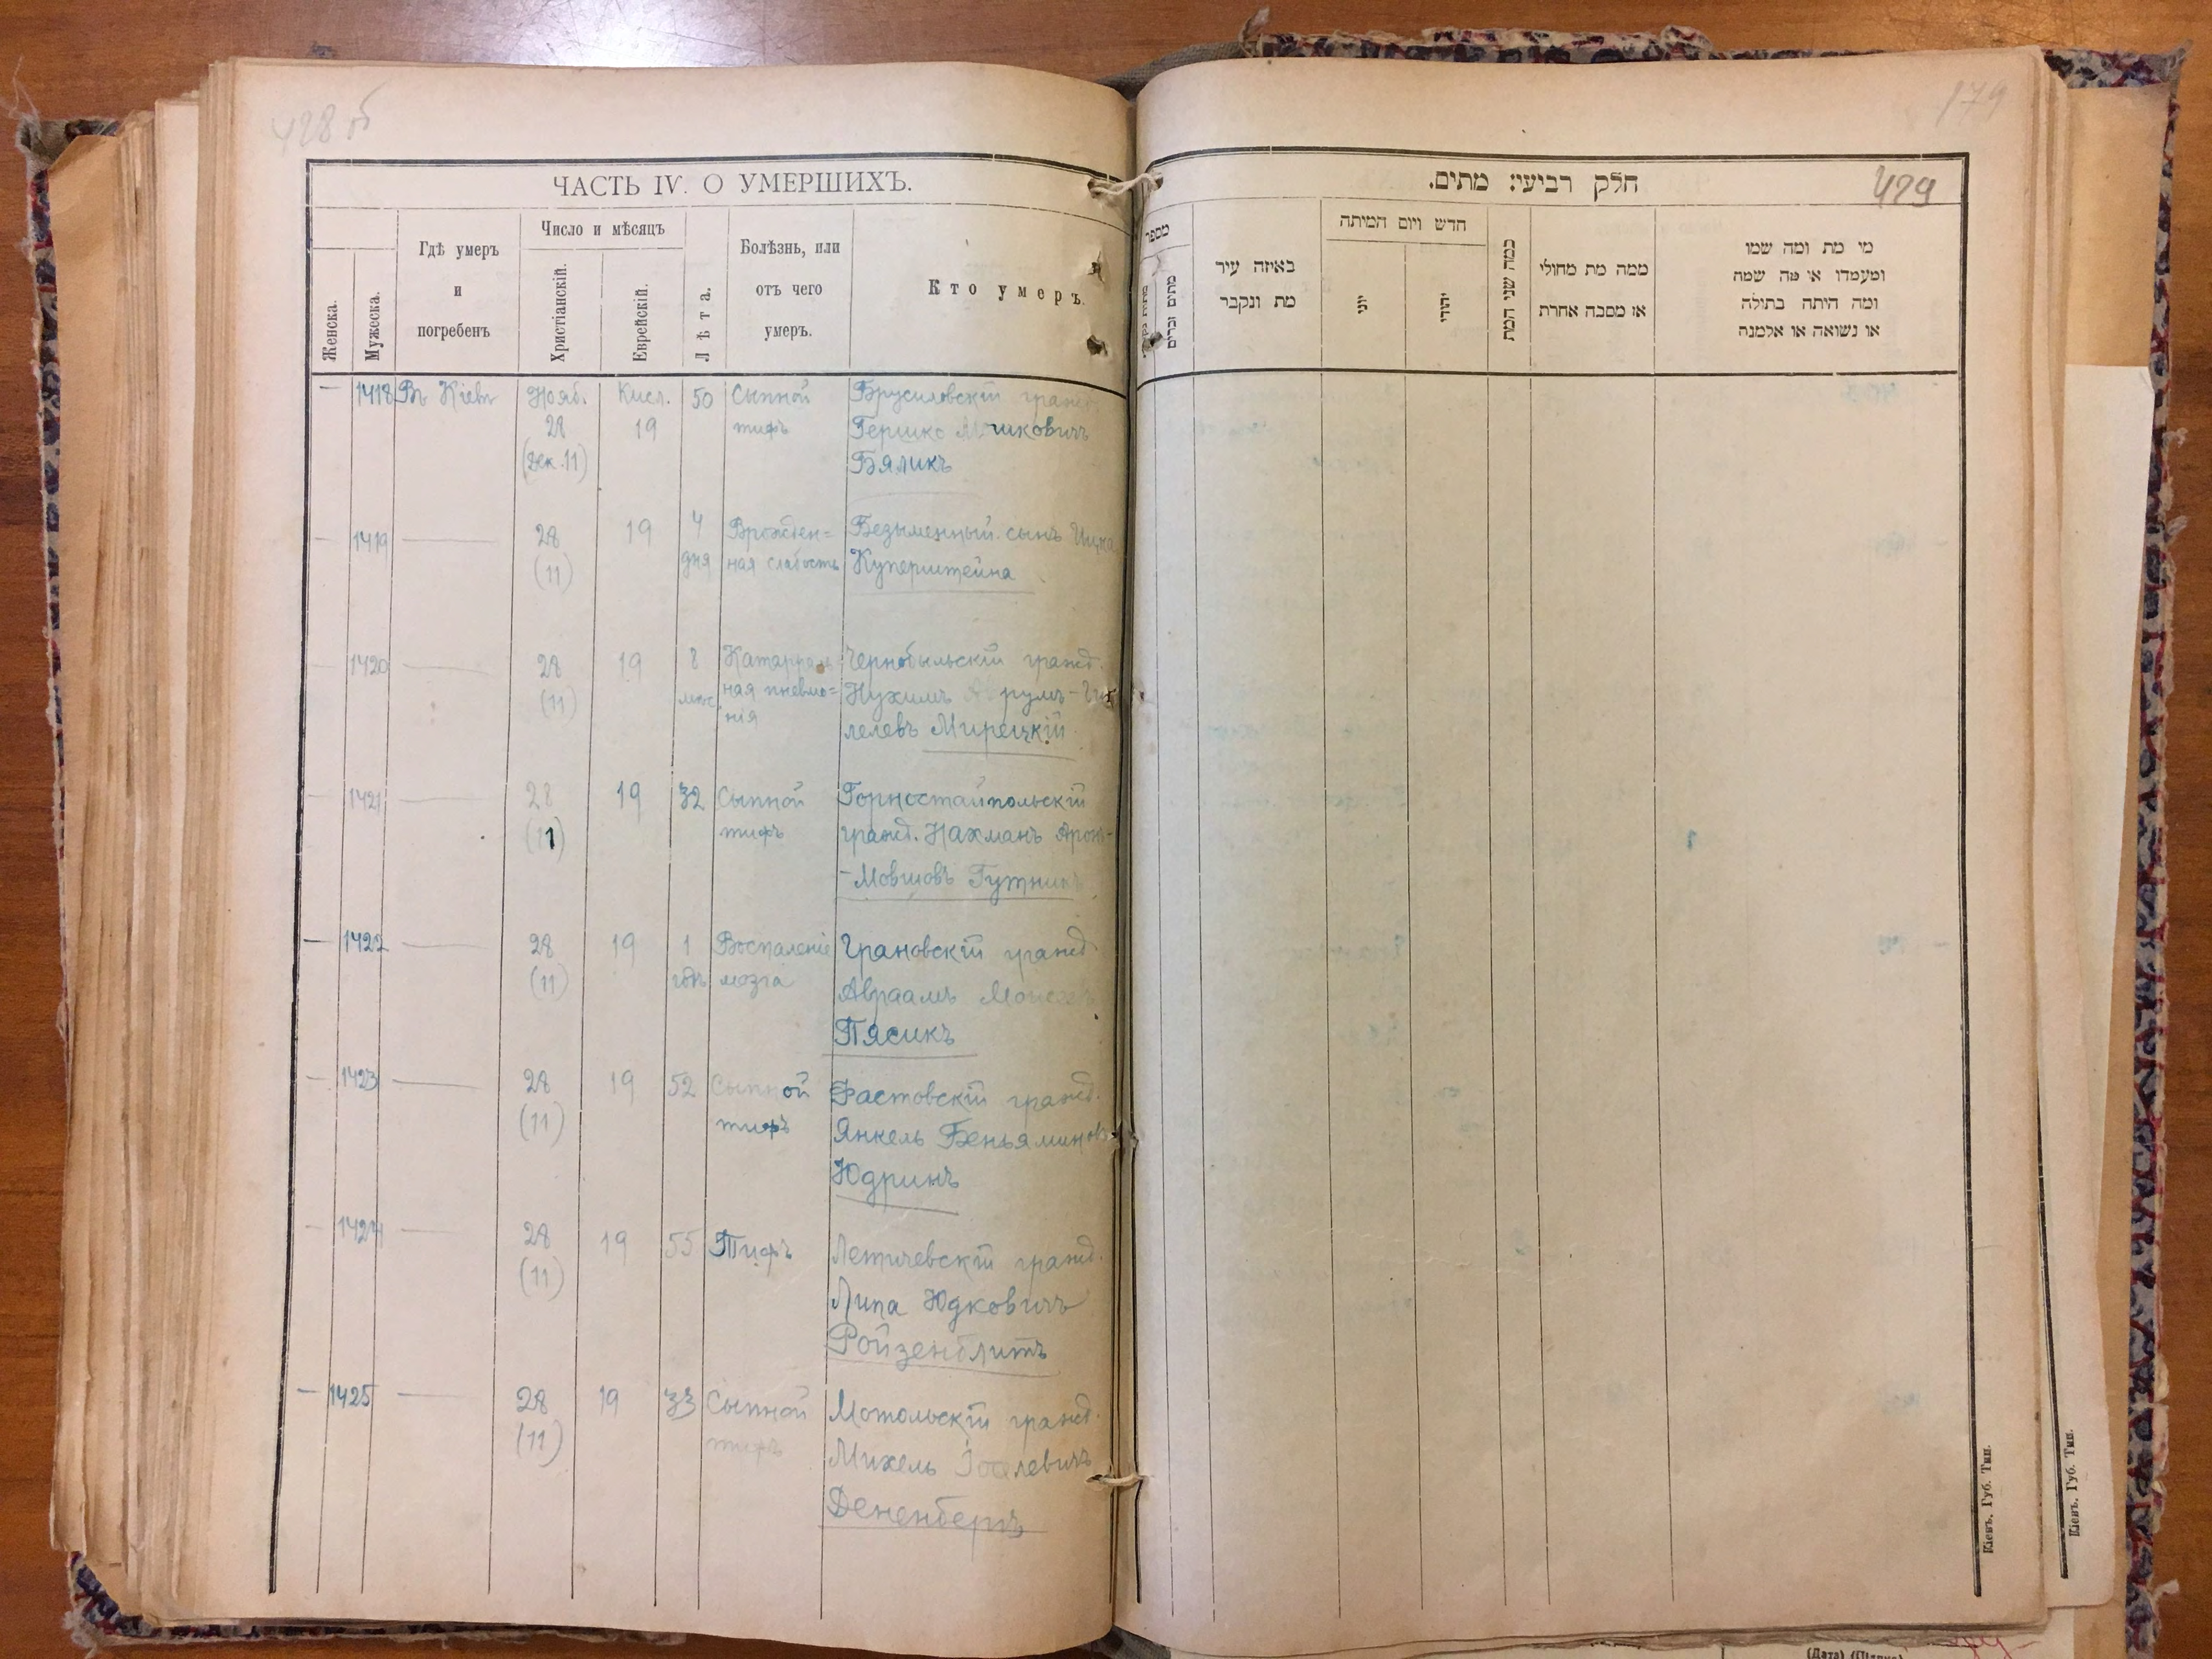 428 об
ЧАСТЬ IV. О УМЕРШИХЪ.
Женска.
Мужеска.
Гдѣ умеръ
и
погребенъ
Число и мѣсяцъ
Христіанскій.
Еврейскій.
Лѣта.
Болѣзнь, или
отъ чего
умеръ.
Кто умеръ.
— 1418 Въ Кіевѣ Нояб. Кисл. 50 Сыпной Брусиловскій гражд.
28 19 тифъ Гершко Мошковичъ
(Дек. 11) Бяликъ
— 1419 — 28 19 4 Врожден= Безыменный сынъ Ицка
(11) дня ная слабость Куперштейна
1420 — 28 19 8 Катарраль Чернобыльскій гражд.
(11) мѣс. ная пневмо= Нухимъ Аврумъ-
нія лелевъ Мирецкій
1421 — 28 19 32 Сыпной Горностайпольскій
(11) тифъ гражд. Нахманъ Аронъ-
-Мовшовъ Гутникъ
— 1422 — 28 19 1 Воспаленіе Грановскій гражд.
(11) годъ мозга Авраамъ Моисеевъ
Пясикъ
— 1423 — 28 19 52 Сыпной Фастовскій гражд.
(11) тифъ Янкель Беньяминовъ
Юдринъ
— 1424 — 28 19 55 Тифъ Летичевскій гражд.
(11) Липа Юдковичъ
Ройзенблитъ
— 1425 — 28 19 33 Сыпной Мотольскій гражд.
(11) тифъ Михель Іоселевичъ
Дененбергъ
179
חלק רביעי: מתים.
429
מספר
מתים זכרים
באיזה עיר
מת ונקבר
חדש ויום המיתה
יוני
יהודי
כמה שני המת
ממה מת מחולי
או מסבה אחרת
מי מת ומה שמו
ומעמדו או מה שמה
ומה היתה בתולה
או נשואה או אלמנה
Кіевъ, Губ. Тип.
Кіевъ, Губ. Тип.
(Дата)